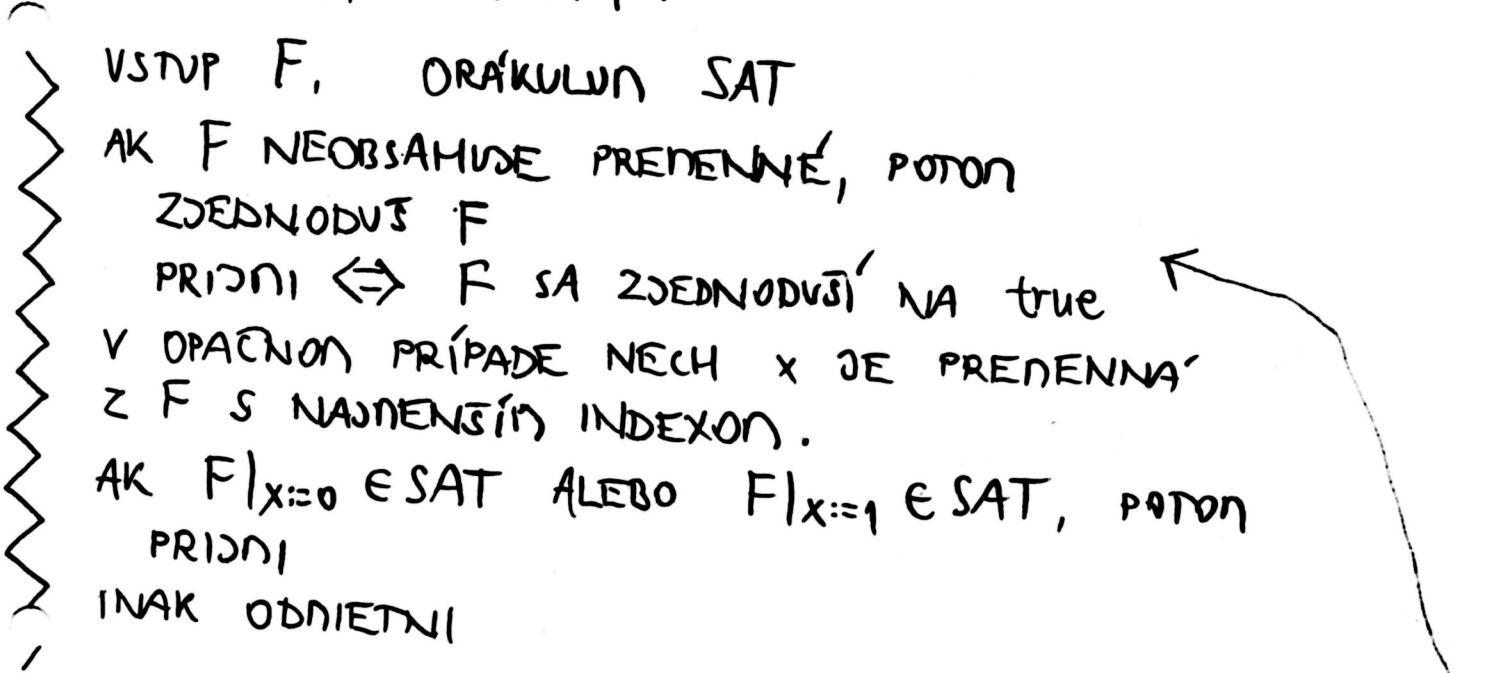 VSTUP F, ORÁKULUM SAT
AK F NEOBSAHUJE PREMENNÉ, POTOM
ZJEDNODUŠ F
PRIJMI ⇔ F SA ZJEDNODUŠÍ NA true
V OPAČNOM PRÍPADE NECH x JE PREMENNÁ
Z F S NAJMENŠÍM INDEXOM.
AK F|x:=0 ∈ SAT ALEBO F|x:=1 ∈ SAT, POTOM
PRIJMI
INAK ODMIETNI